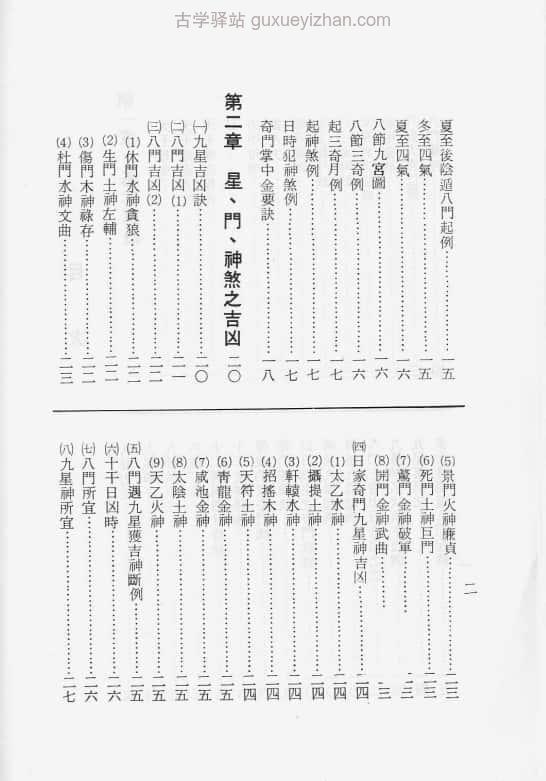 古学驿站 guxueyizhan.com
夏至後陰遁八門起例……一五
冬至四氣……一五
夏至四氣……一六
八節九宮圖……一六
八節三奇例……一六
起三奇月例……一七
起神煞例……一七
日時犯神煞例……一七
奇門掌中金要訣……一八
第二章　星、門、神煞之吉凶……二〇
㈠九星吉凶訣……二〇
㈡八門吉凶⑴……二一
㈢八門吉凶⑵……二二
⑴休門水神貪狼……二二
⑵生門土神左輔……二二
⑶傷門木神祿存……二二
⑷杜門水神文曲……二三
⑸景門火神廉貞……二三
⑹死門土神巨門……二三
⑺驚門金神破軍……二三
⑻開門金神武曲……二三
㈣日家奇門九星神吉凶……二四
⑴太乙水神……二四
⑵攝提土神……二四
⑶軒轅水神……二四
⑷招搖木神……二四
⑸天符土神……二四
⑹靑龍金神……二五
⑺咸池金神……二五
⑻太陰土神……二五
⑼天乙火神……二五
㈤八門遇九星獲吉神斷例……二五
㈥十干日凶時……二六
㈦八門所宜……二六
㈧九星神所宜……二七
二